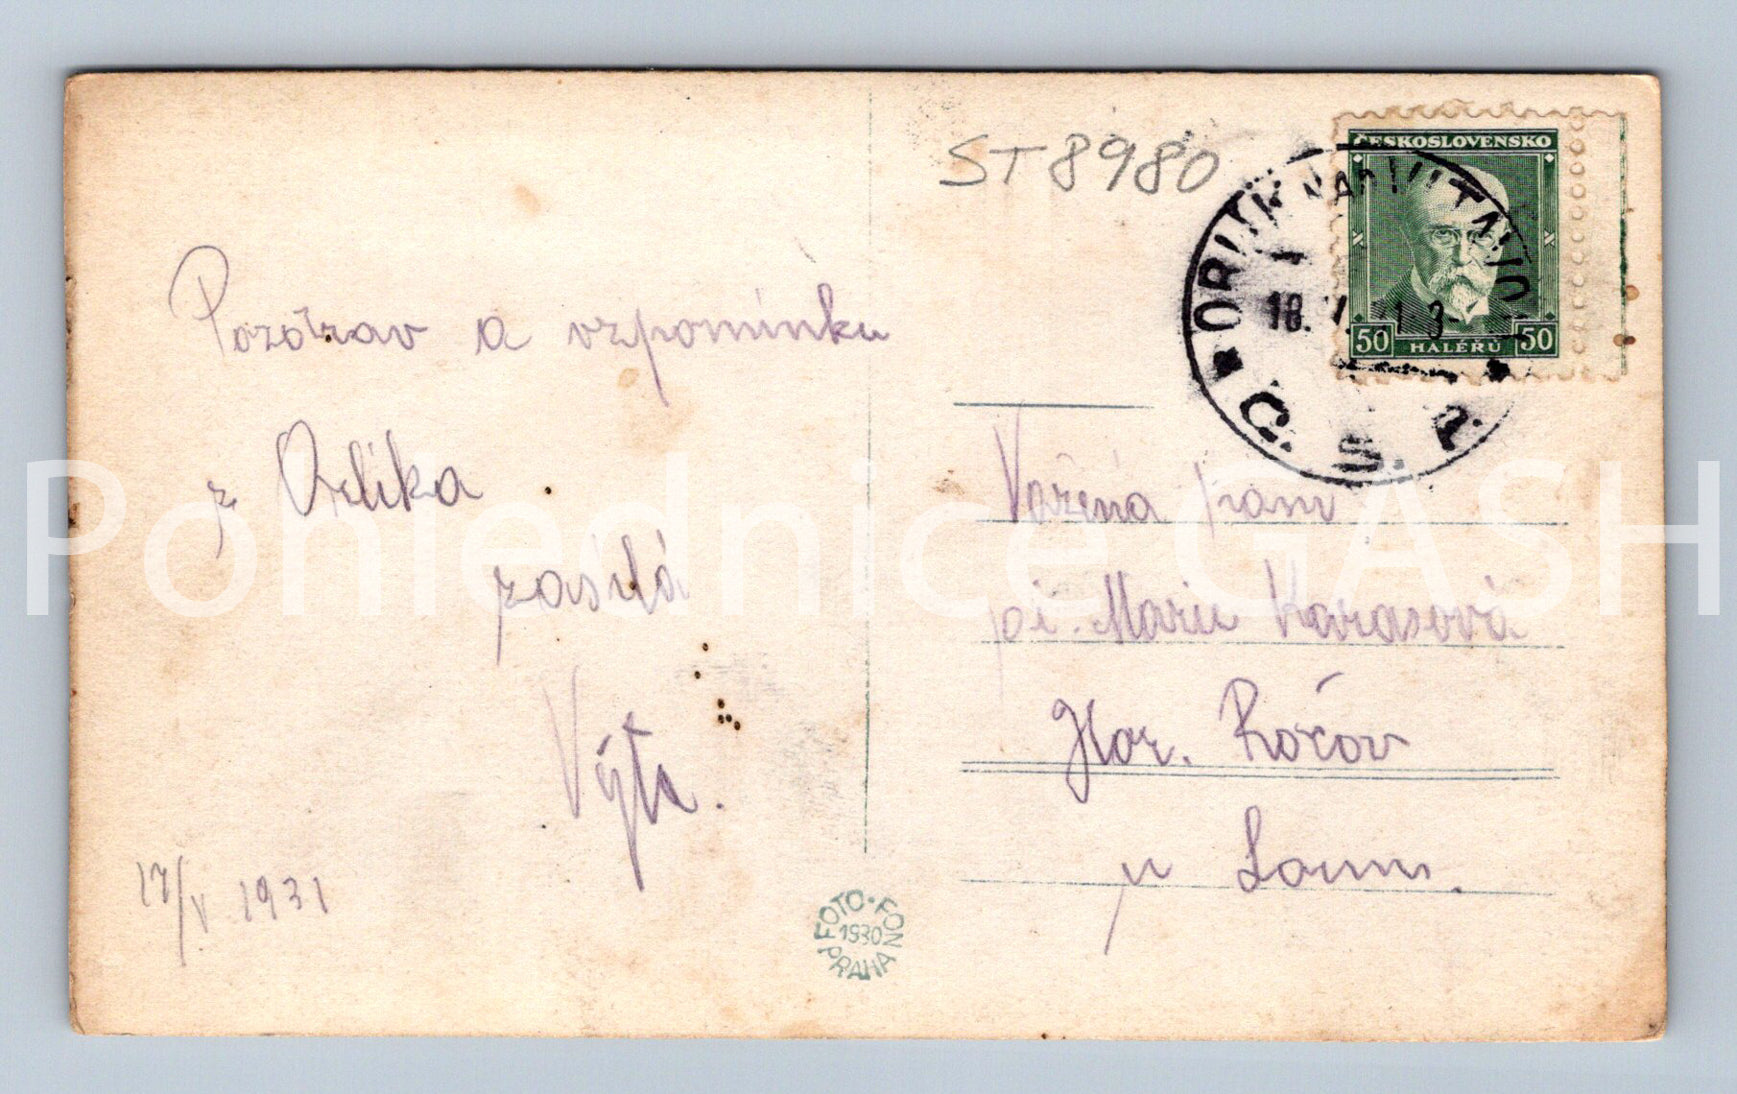 ST8980
ČESKOSLOVENSKO
50 HALÉŘŮ 50
ORLÍK NAD VLTAVOU
18. V. 31
Č. S. P.
Pozdrav a vzpomínku
z Orlíka
zasílá
Výťa.
17/V 1931
Vážená paní
pí. Marie Karasová
Hor. Ročov
u Loun.
FOTO·FON
1930
PRAHA
Pohlednice GASH